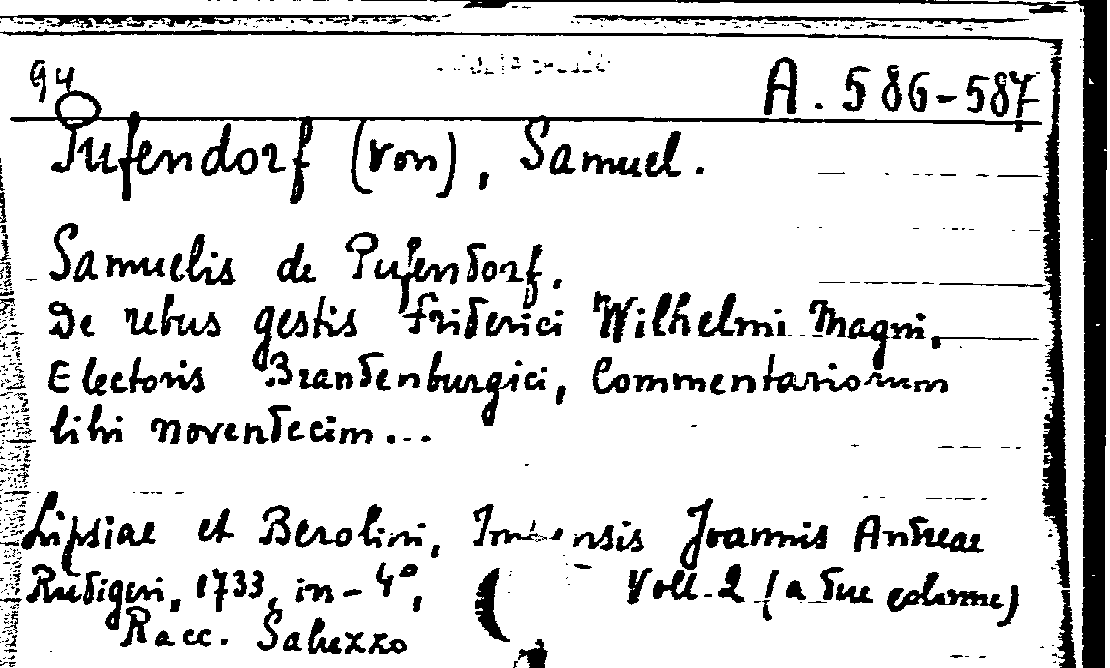 94
A. 586-587
Pufendorf (von), Samuel.
Samuelis de Pufendorf.
De rebus gestis Friderici Wilhelmi Magni,
Electoris Brandenburgici, Commentariorum
libri novendecim...
Lipsiae et Berolini, Joannis Andreae
Rudigeri, 1733, in-4°, Voll. 2 (a due colonne)
Racc. Saluzzo